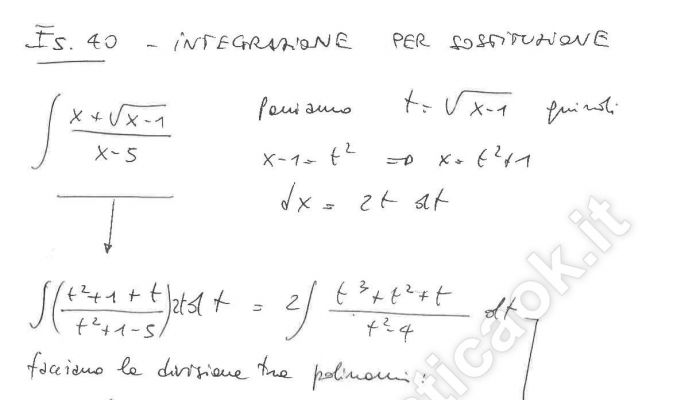 Es. 40 - INTEGRAZIONE PER SOSTITUZIONE
∫ (x + √(x-1)) / (x-5) Poniamo t = √(x-1) quindi
x-1 = t² ⇒ x = t²+1
dx = 2t dt
∫ ((t²+1+t) / (t²+1-5)) 2t dt = 2∫ (t³+t²+t) / (t²-4) dt
facciamo la divisione tra polinomi:
aticaok.it